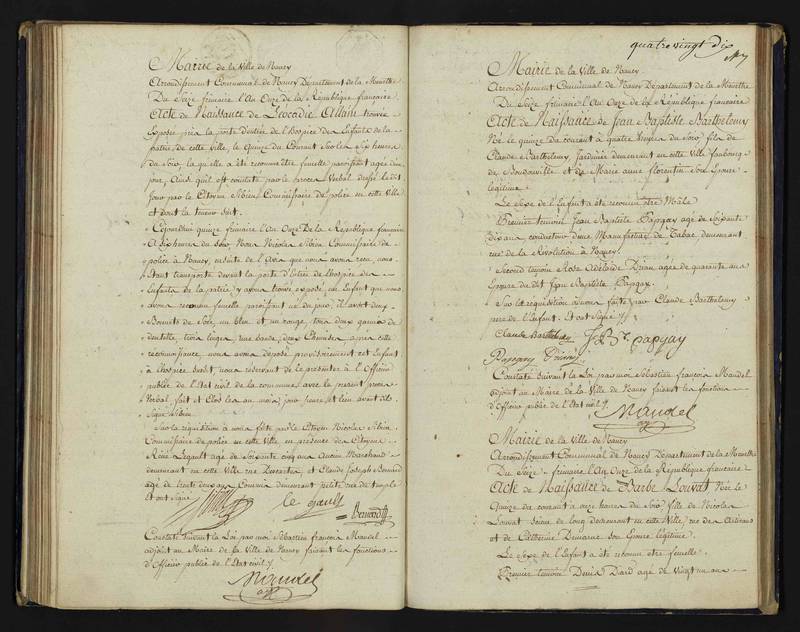 Mairie de la Ville de Nancy
Arrondissement Communal de Nancy Département de la Meurthe
Du Seize frimaire l'An Onze de la République française
Acte de Naissance de Léocadie Allain trouvée
Exposée près la porte d'entrée de l'Hospice des Enfants de la
patrie de cette ville, le quinze du Courant sur les six heures
du soir, laquelle a été reconnue être femelle paroissant agée d'un
jour, Ainsi qu'il est constaté par le procès Verbal dressé le dit
jour par le Citoyen Sibien Commissaire de police en cette Ville
et dont la teneur suit.
Cejourd'hui quinze frimaire l'An Onze De la République française
à six heures du soir Nous Nicolas Sibien Commissaire de
police à Nancy, ensuite de l'Avis que nous avons reçu, nous
étant transporté devant la porte d'Entrée de l'hospice des
Enfants de la patrie, y avons trouvé exposé, un Enfant que nous
avons reconnu femelle paroissant né du jour, il avoit deux
Bonnets de Soie, un bleu et un rouge, trois garnis de
dentelle, trois langes, une bande, deux Chemises, après cette
reconnoissance nous avons déposé provisoirement cet Enfant
à l'hospice susdit, nous réservant de le présenter à l'Officier
public de l'Etat civil de la commune, avec le présent procès
Verbal fait et Clos les an mois, jour heure et lieu avant dits
Signé Sibien
Sur la réquisition à nous faite par le Citoyen Nicolas Sibien
Commissaire de police en cette ville, en présence des Citoyens
René Legault agé de Soixante cinq ans Ancien Marchand
demeurant en cette Ville rue Descartes, et Claude Joseph Bernard
agé de trente deux ans Commis demeurant petite rue du temple
Et ont signé
le gault
Bernard
Constaté suivant la Loi par moi Sébastien françois Mandel
adjoint au Maire de la Ville de Nancy faisant les fonctions
d'Officier public de l'Etat civil.
Mandel
adj
quatre vingt dix
Mairie de la Ville de Nancy
Arrondissement Communal de Nancy Département de la Meurthe
Du Seize frimaire l'An Onze de la République française
Acte de Naissance de Jean Baptiste Barthelemy
Né le quinze du courant à quatre heures du Soir fils de
Claude Barthelemy, Jardinier demeurant en cette Ville faubourg
de Boudonville et de Marie anne florentin son Epouse
légitime.
Le Sexe de l'Enfant a été reconnu être Mâle
Premier témoin Jean Baptiste Papigay agé de Soixante
dix ans conducteur d'une Manufacture de Tabac demeurant
rue de la Révolution à Nancy.
Second témoin Rose Adelaïde agée de quarante ans
Epouse du dit Jean Baptiste Papigay.
Sur la réquisition à nous faite par Claude Barthelemy
père de l'Enfant. Et ont Signé
Claude Barthelemy J Bte papigay
Constaté suivant la Loi par moi Sébastien françois Mandel
adjoint au Maire de la Ville de Nancy faisant les fonctions
d'Officier public de l'Etat civil
Mandel
adj
Mairie de la Ville de Nancy
Arrondissement Communal de Nancy Département de la Meurthe
Du Seize frimaire l'An Onze de la République française
Acte de Naissance de Barbe Louvat Née le
Quinze du courant à onze heures du Soir fille de Nicolas
Louvat Scieur de long demeurant en cette Ville, rue des Artisans
et de Catherine Demange son Epouse légitime.
Le Sexe de l'Enfant a été reconnu être femelle.
Premier témoin Denis Dard agé de Vingt un ans